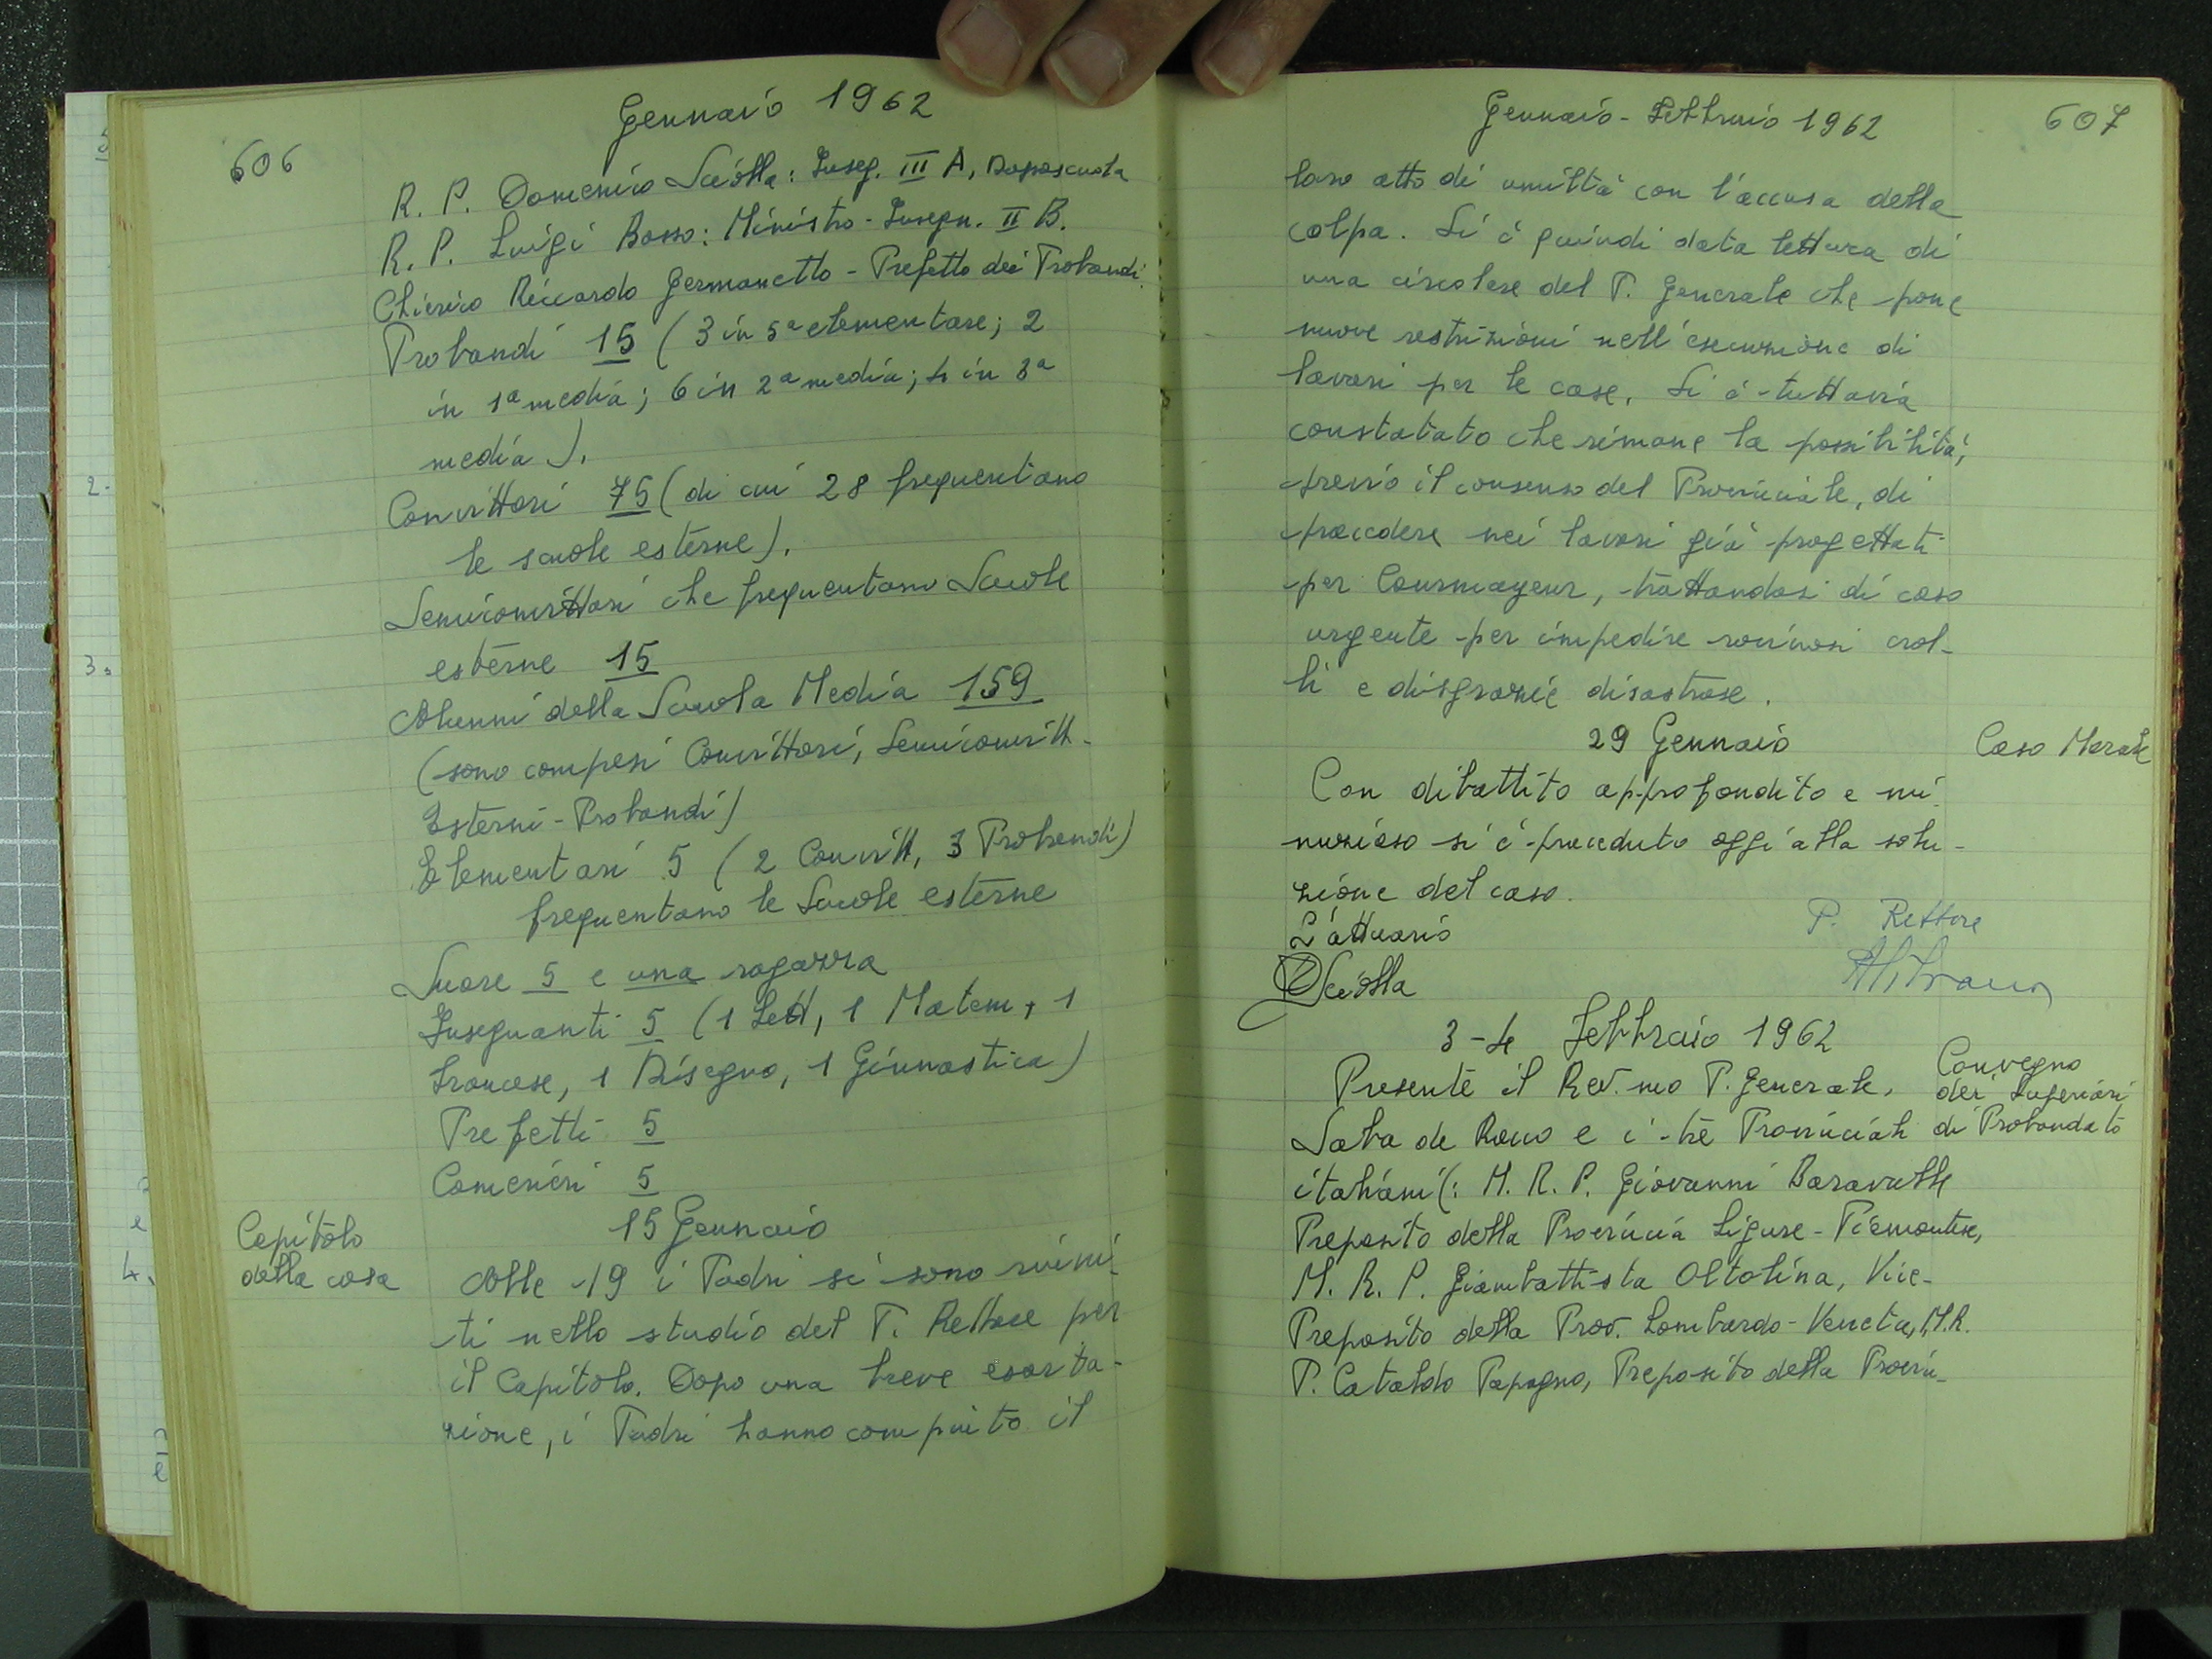 606
Gennaio 1962
R. P. Domenico Sciolla: Inseg. III A, Doposcuola
R. P. Luigi Bosso: Ministro - Insegn. II B.
Chierico Riccardo Germanetto - Prefetto dei Probandi.
Probandi 15 (3 in 5ª elementare; 2
in 1ª media; 6 in 2ª media; 4 in 3ª
media).
Convittori 75 (di cui 28 frequentano
le scuole esterne).
Semiconvittori che frequentano Scuole
esterne 15
Alunni della Scuola Media 159
(sono compresi Convittori, Semiconvitt-
Esterni - Probandi)
Elementari 5 (2 Convitt, 3 Probandi)
frequentano le Scuole esterne
Suore 5 e una ragazza
Insegnanti 5 (1 Lett, 1 Matem, 1
francese, 1 Disegno, 1 Ginnastica)
Prefetti 5
Camerieri 5
15 Gennaio
Capitolo
della casa
Alle 19 i Padri si sono riuni-
ti nello studio del P. Rettore per
il Capitolo. Dopo una breve esorta-
zione, i Padri hanno compiuto il
Gennaio - Febbraio 1962
607
loro atto di umiltà con l'accusa della
colpa. Si è quindi data lettura di
una circolare del P. Generale che pone
nuove restrizioni nell'esecuzione di
lavori per le case. Si è tuttavia
constatato che rimane la possibilità,
previo il consenso del Provinciale, di
procedere nei lavori già progettati
per Courmayeur, trattandosi di caso
urgente per impedire rovinosi crol-
li e disgrazie disastrose.
29 Gennaio
Caso Morale
Con dibattito approfondito e mi-
nuzioso si è proceduto oggi alla solu-
zione del caso.
L'attuario
P. Rettore
DSciolla
3-4 Febbraio 1962
Convegno
dei Superiori
di Probandato
Presente il Rev.mo P. Generale,
Saba de Rocco e i tre Provinciali
italiani (: M. R. P. Giovanni Baravalle
Preposito della Provincia Ligure - Piemontese,
M. R. P. Giambattista Oltolina, Vice-
Preposito della Prov. Lombardo-Veneta, M.R.
P. Cataldo Papagno, Preposito della Provin-